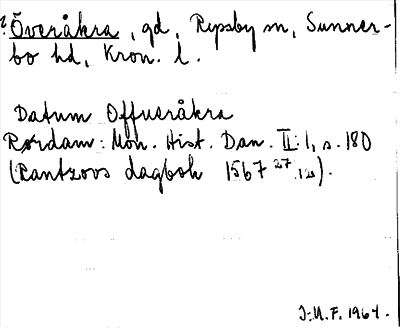 Överåkra, gd, Ryssby sn, Sunner-
bo hd, Kron. l.
Datum Offueråkra
Rørdam: Mon. Hist. Dan. II:1, s. 180
(Rantzovs dagbok 1567 27/12).
J.M.F. 1964.